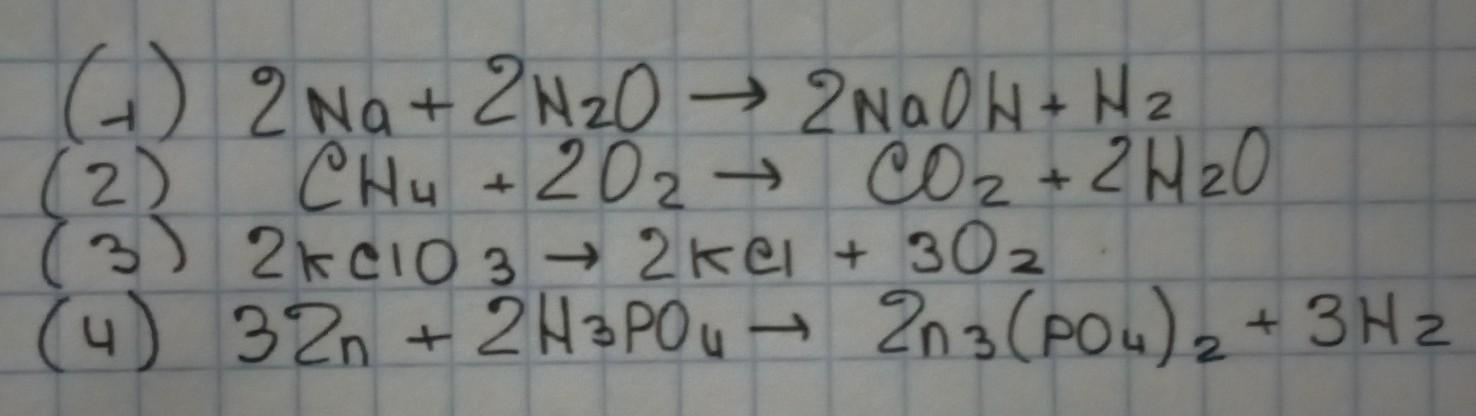 (1) 2Na + 2H2O → 2NaOH + H2
(2) CH4 + 2O2 → CO2 + 2H2O
(3) 2KClO3 → 2KCl + 3O2
(4) 3Zn + 2H3PO4 → Zn3(PO4)2 + 3H2